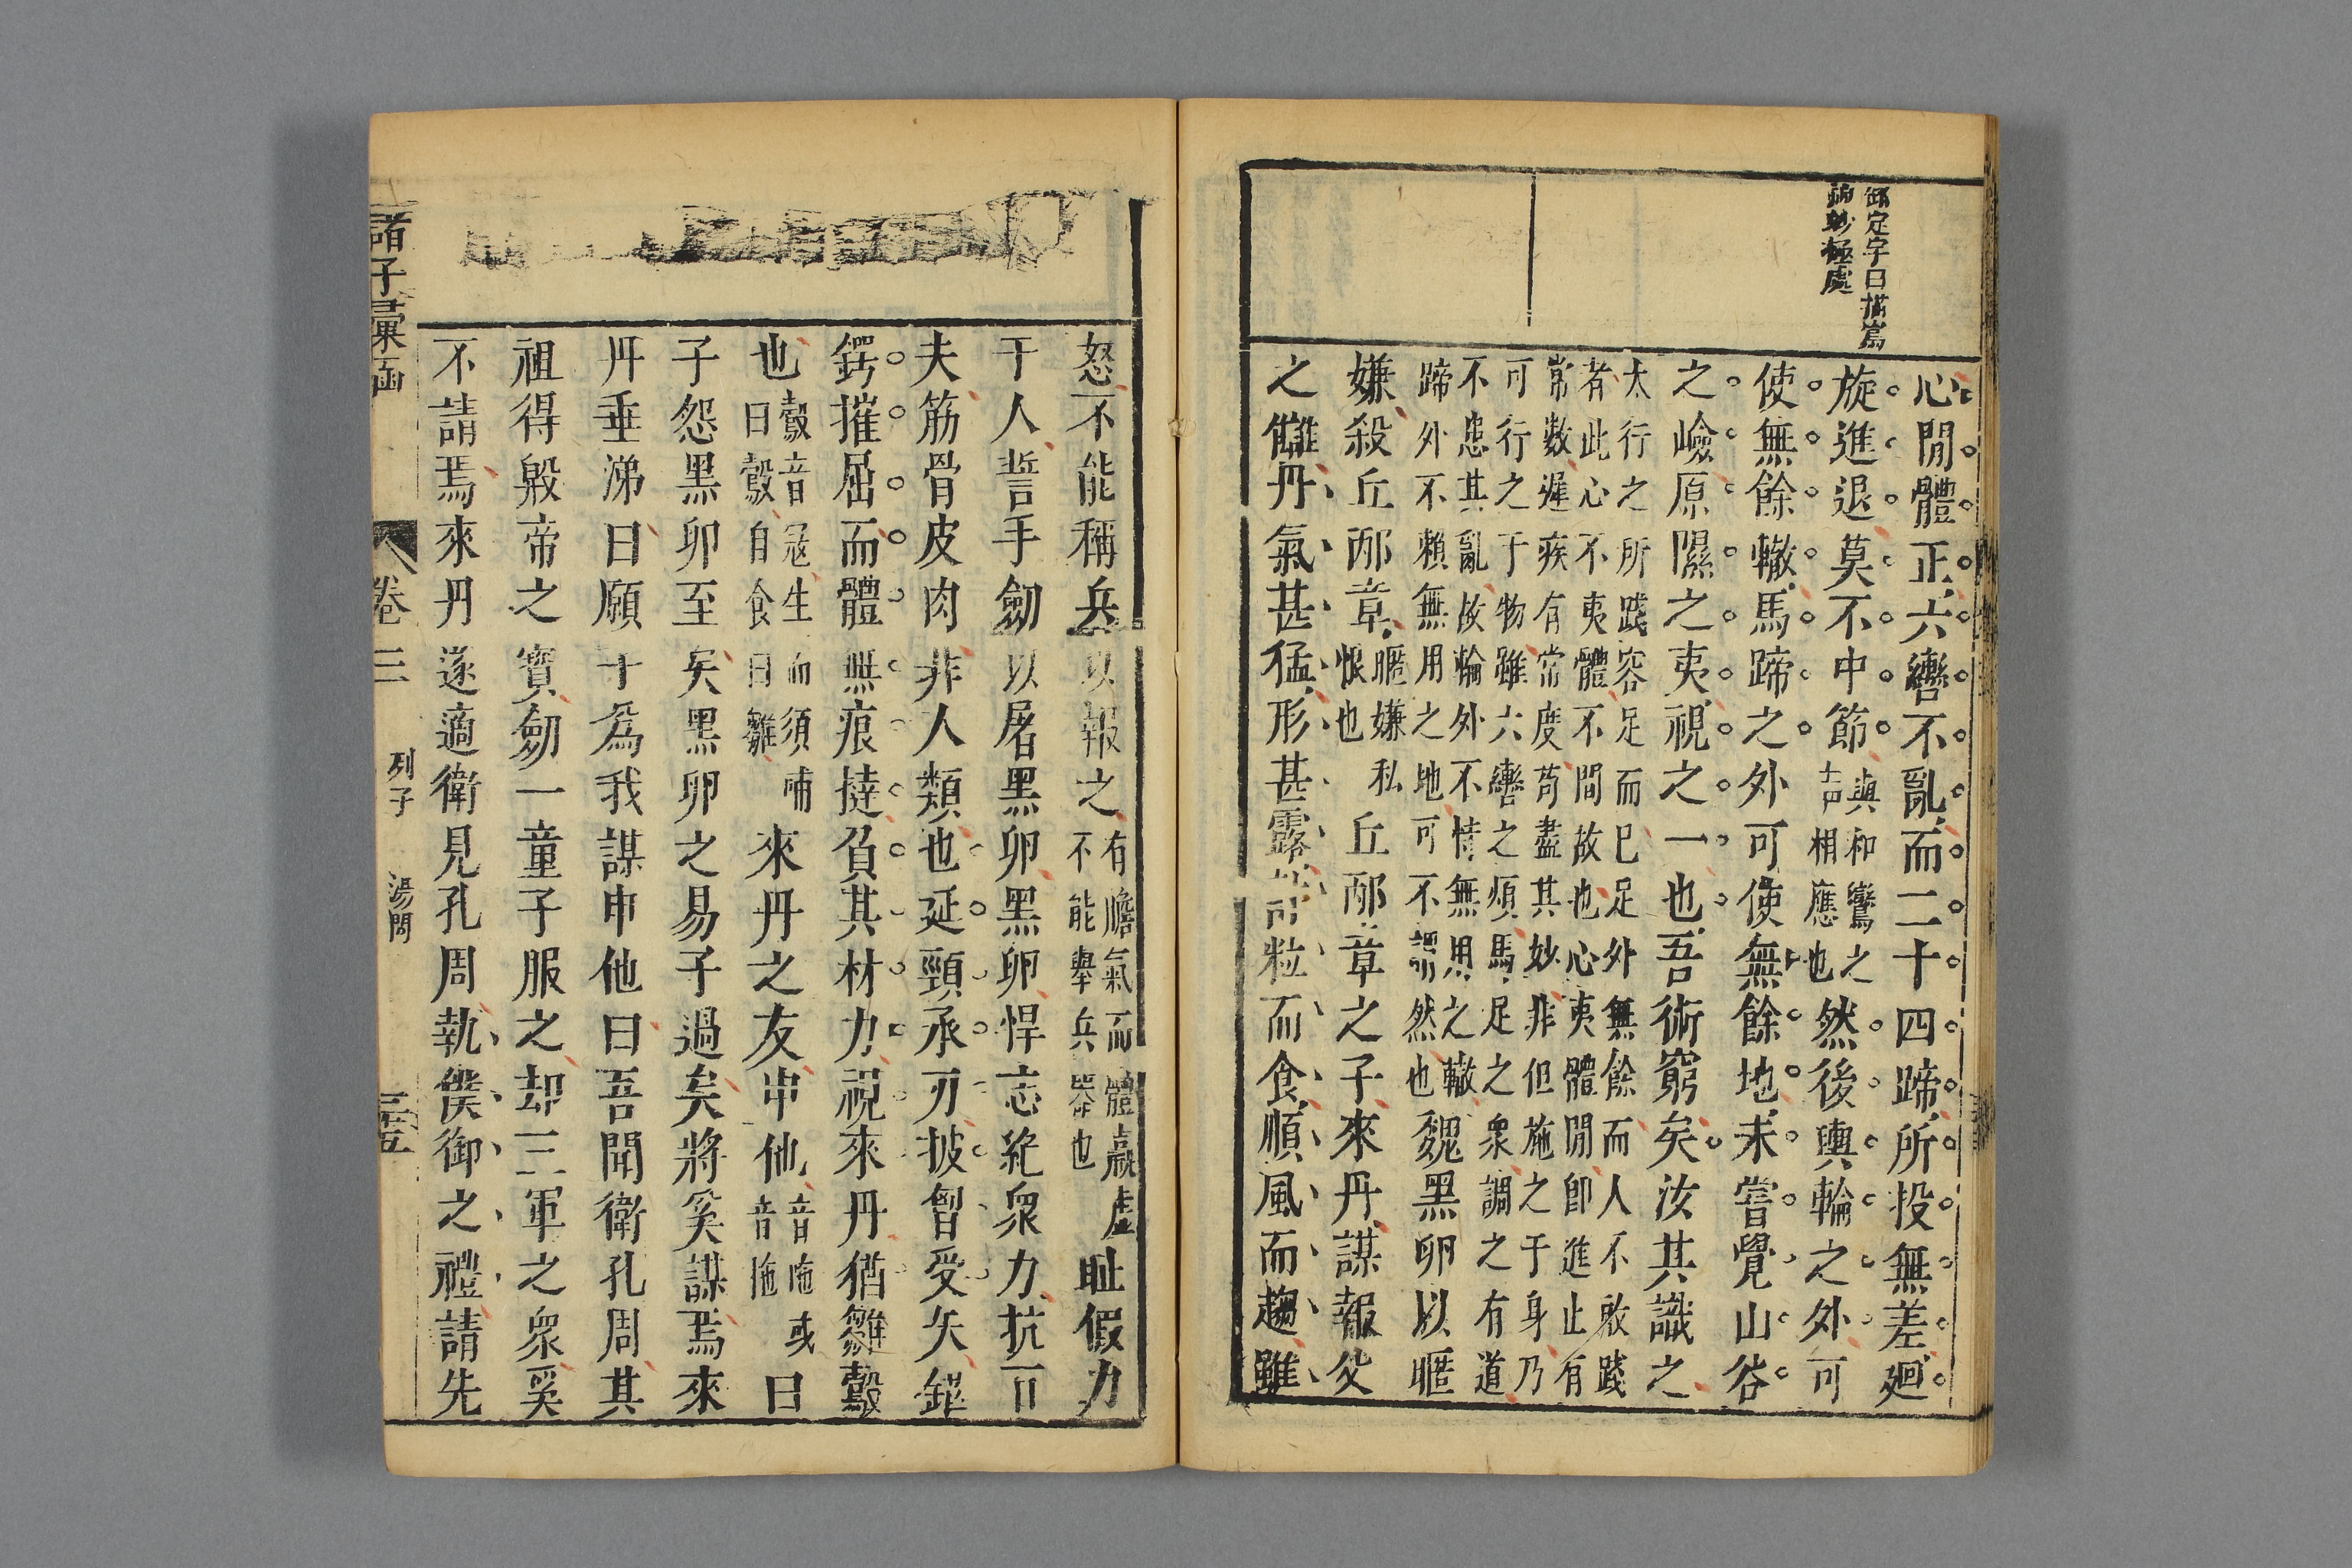 鄧定宇曰描寫
神妙極處
心閒體正六轡不亂而二十四蹄所投無差廻
旋進退莫不中節與和鸞之聲相應也然後輿輪之外可
使無餘轍馬蹄之外可使無餘地未嘗覺山谷
之嶮原隰之夷視之一也吾術窮矣汝其識之
夫行之所踐容足而已足外無餘而人不敢踐
者此心不夷體不閒故也心夷體閒即進止有
常數遲疾有常度苟盡其妙非但施之于身乃
可行之于物雖六轡之煩馬足之衆調之有道
不患其亂故輪外不恃無用之轍
蹄外不賴無用之地可不謂然也魏黑卵以暱
嫌殺丘邴章暱嫌私恨也丘邴章之子來丹謀報父
之讎丹氣甚猛形甚露計粒而食順風而趨雖
怒不能稱兵以報之有膽氣而體羸虛不能舉兵器也恥假力
于人誓手劒以屠黑卵黑卵悍志絶衆力抗百
夫筋骨皮肉非人類也延頸承刃披胷受矢鋩
鍔摧屈而體無痕撻負其材力視來丹猶雛鷇
也鷇音冦生而須哺曰鷇自食曰雛來丹之友申他音陁或音拖曰
子怨黑卵至矣黑卵之易子過矣將奚謀焉來
丹垂涕曰願子為我謀申他曰吾聞衛孔周其
祖得殷帝之寶劒一童子服之却三軍之衆奚
不請焉來丹遂適衛見孔周執僕御之禮請先
諸子彙函
卷三
列子
湯問
三五